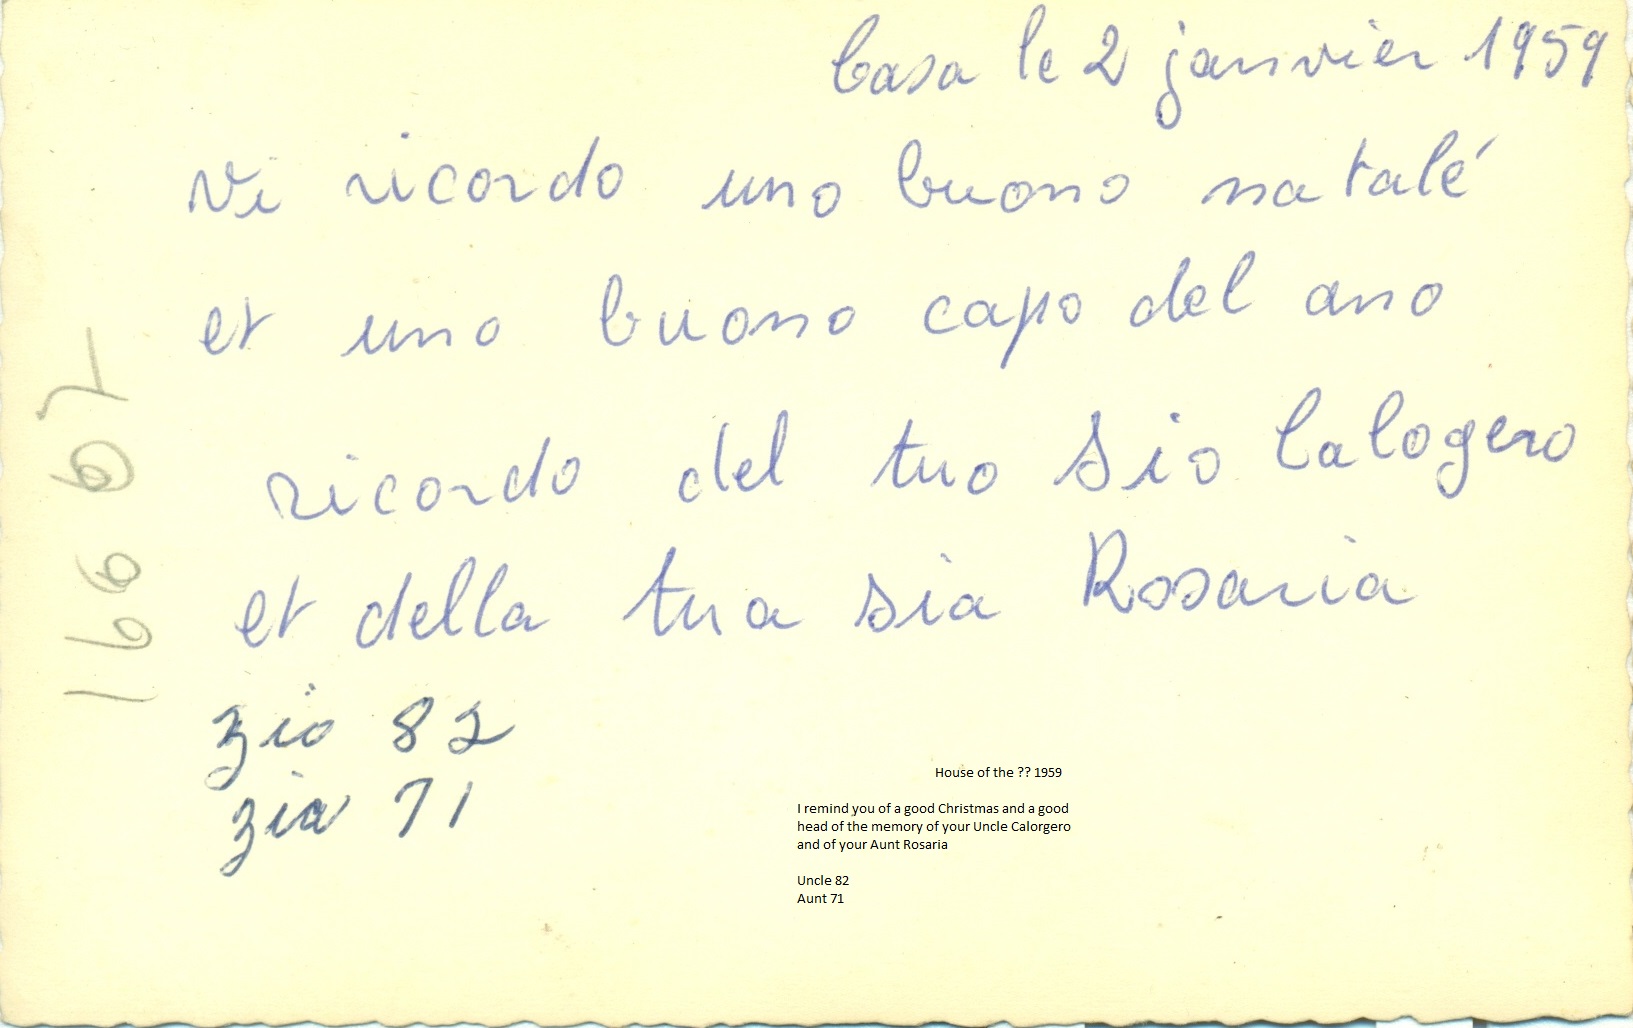 Casa le 2 janvier 1959
Vi ricordo uno buono natalé
et uno buono capo del ano
ricordo del tuo sio Calogero
et della tua sia Rosaria
zio 82
zia 71
House of the ?? 1959
I remind you of a good Christmas and a good
head of the memory of your Uncle Calorgero
and of your Aunt Rosaria
Uncle 82
Aunt 71